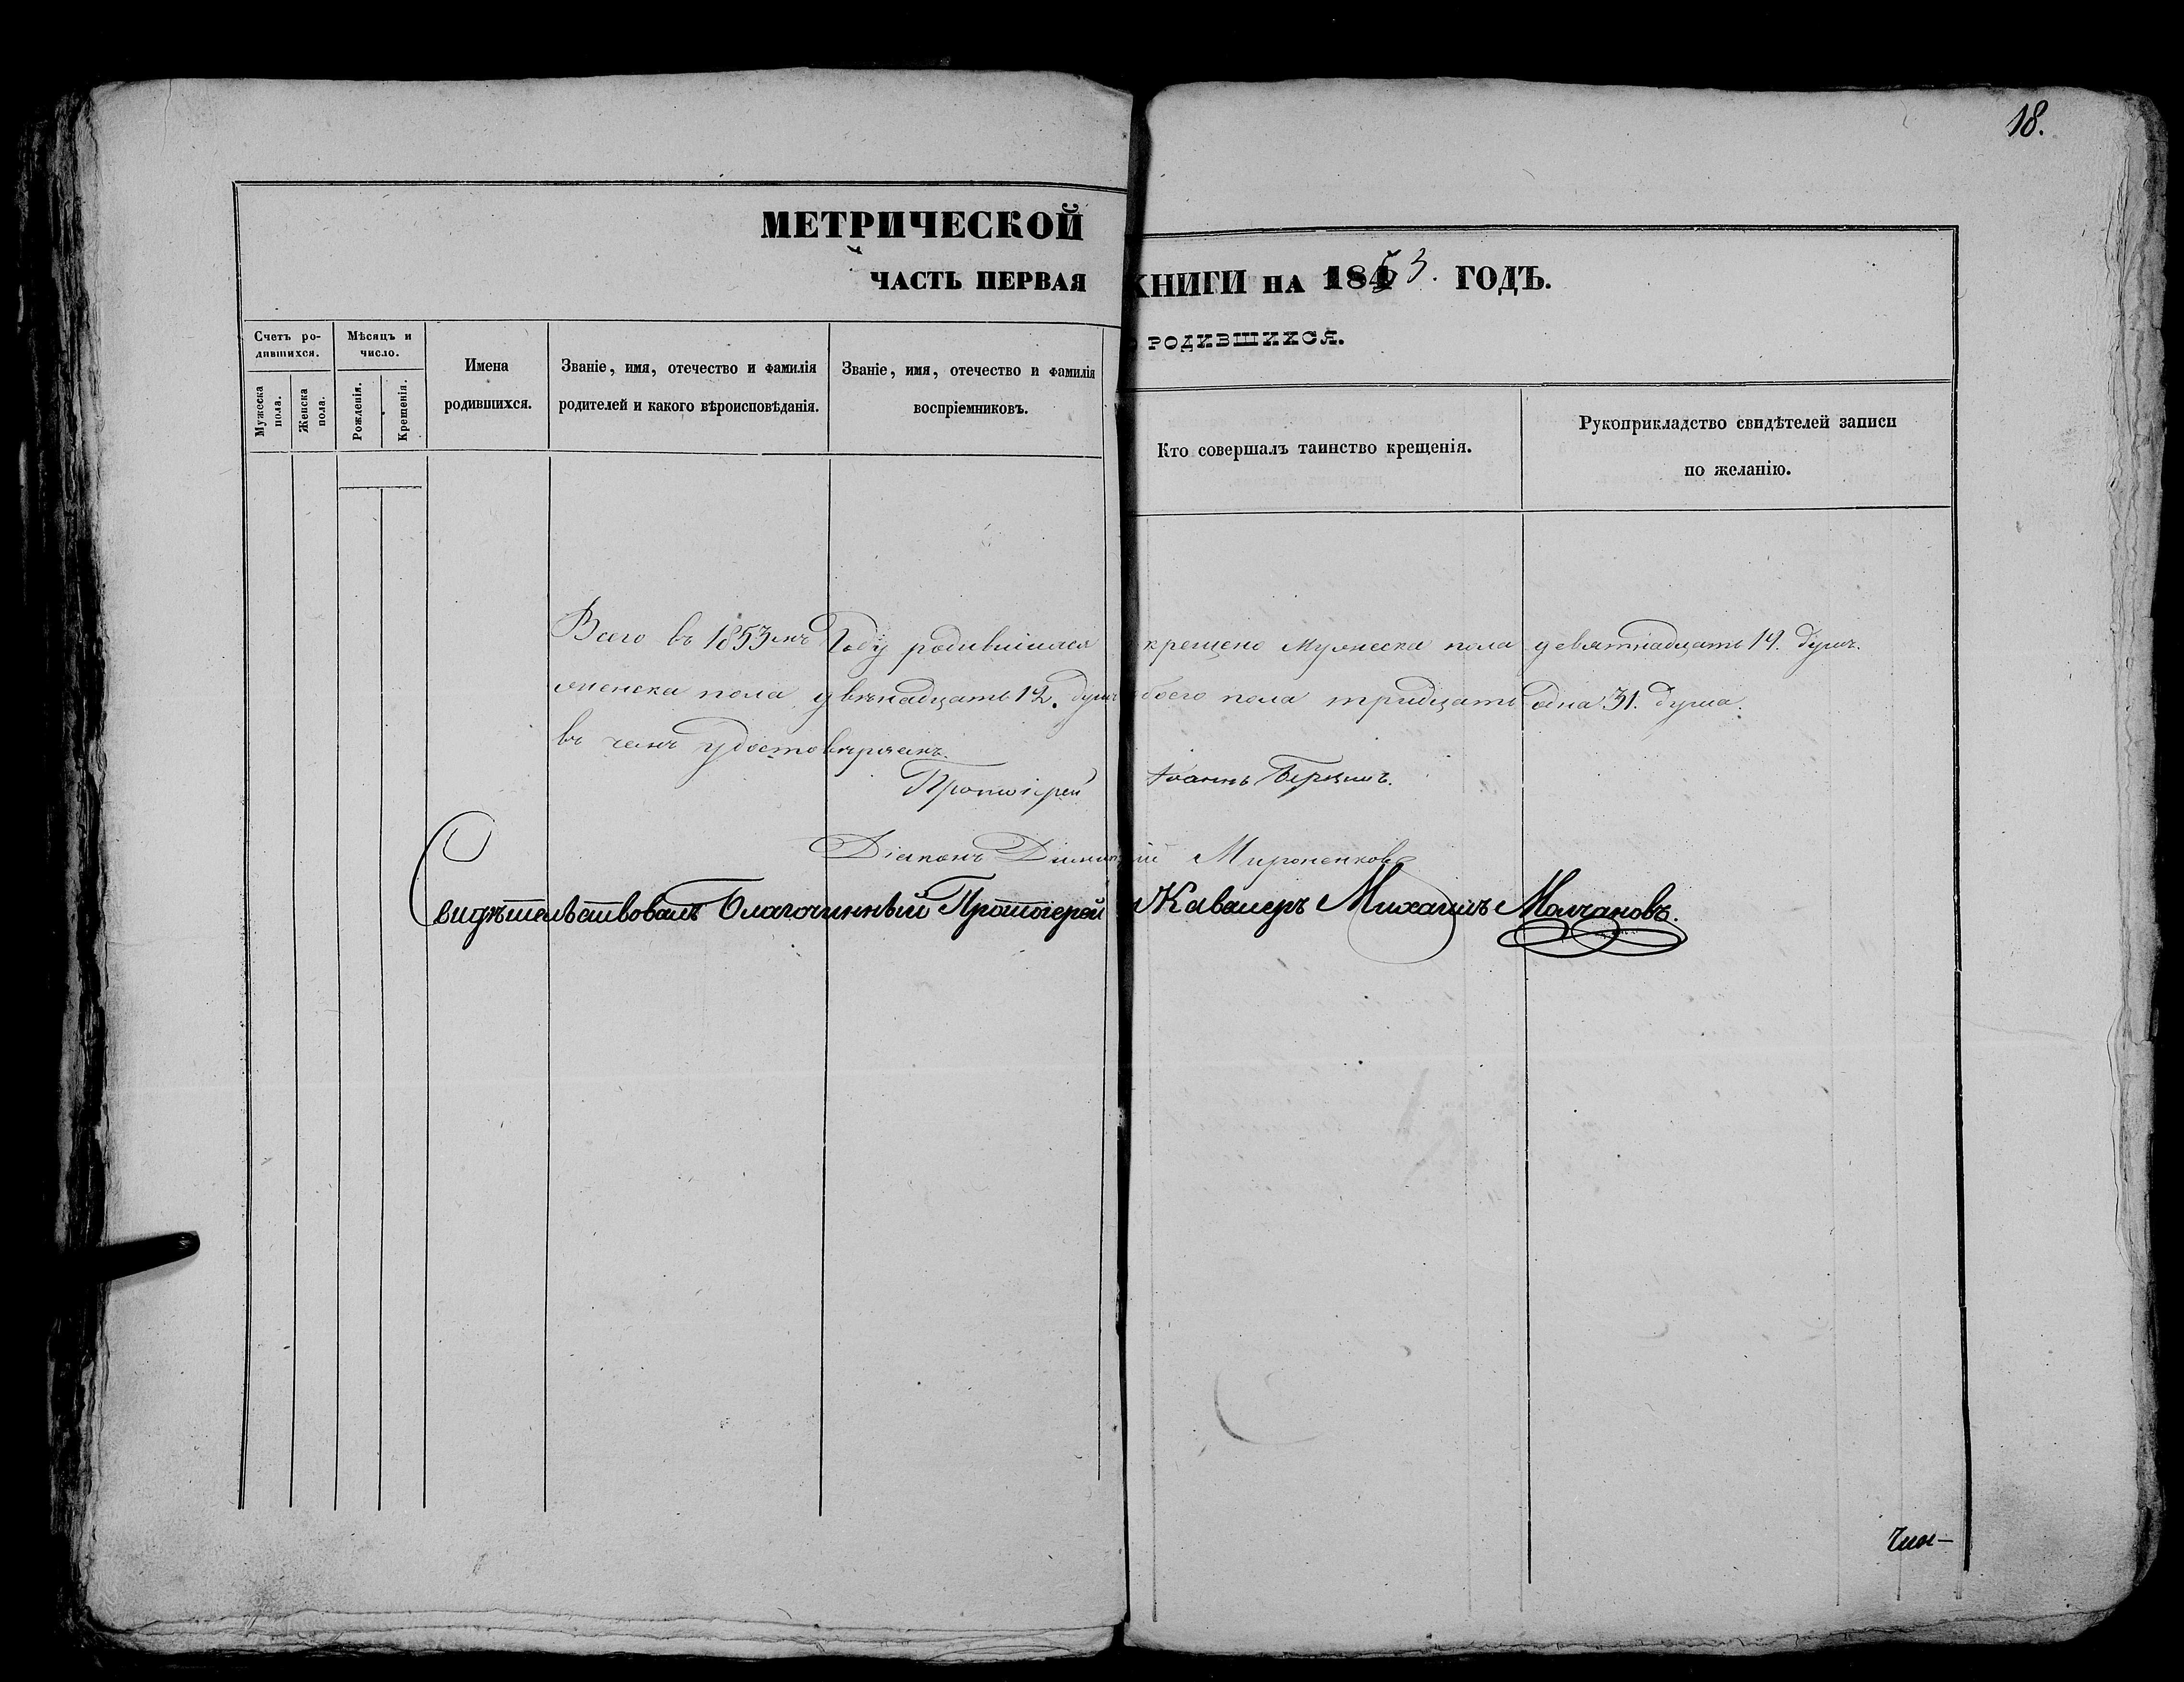 18.
МЕТРИЧЕСКОЙ
КНИГИ НА 1853. ГОДЪ.
ЧАСТЬ ПЕРВАЯ
РОДИВШИХСЯ.
Счетъ ро-
дившихся.
Мужеска
пола.
Женска
пола.
Мѣсяцъ и
число.
Рожденія.
Крещенія.
Имена
родившихся.
Званіе, имя, отечество и фамилія
родителей и какого вѣроисповѣданія.
Званіе, имя, отечество и фамилія
воспріемниковъ.
Кто совершалъ таинство крещенія.
Рукоприкладство свидѣтелей записи
по желанію.
Всего въ 1853мъ Году родившихся крещено мужеска пола девятнадцать 19. душъ.
женска пола двѣнадцать 12. душъ обоего пола тридцать одна 31. душа.
въ чемъ удостовѣряемъ.
Протоіерей Іоаннъ
Діаконъ Димитрій Мироненковъ
Свидѣтельствовалъ Благочинный Протоіерей и Кавалеръ Михаилъ Молчановъ.
Чис-